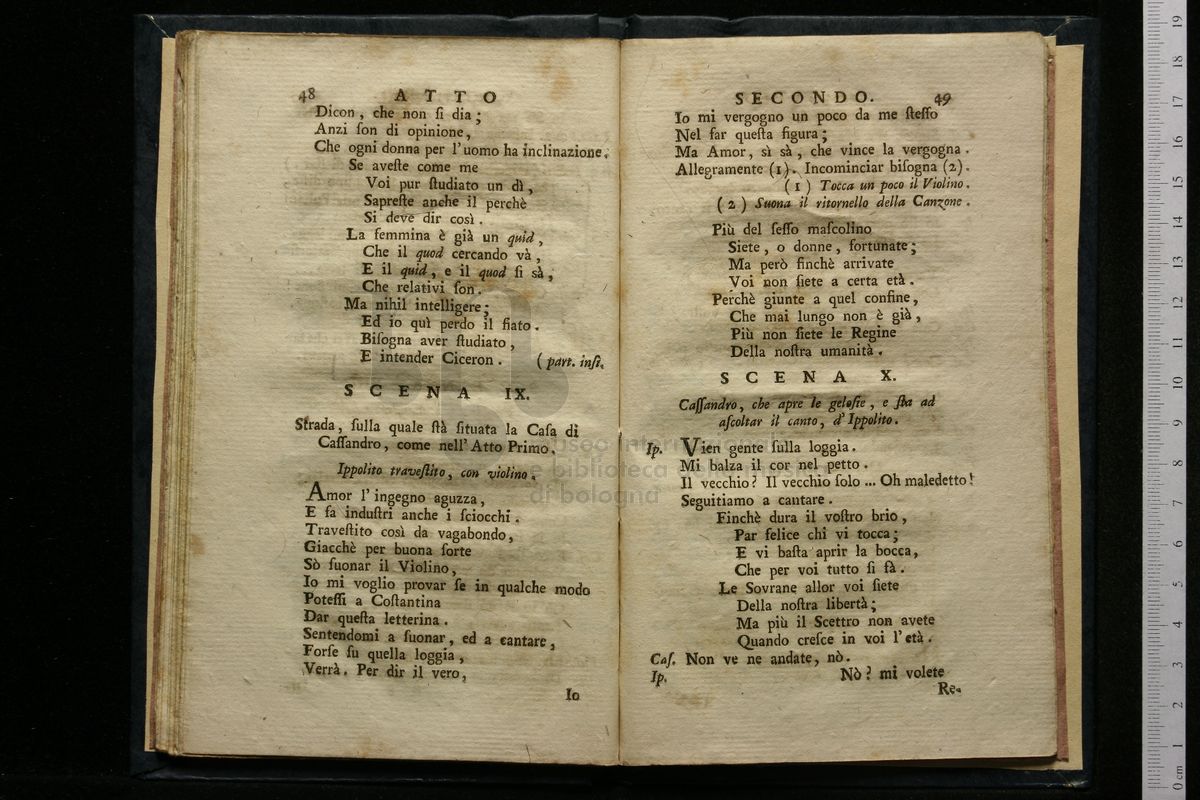 48 ATTO
Dicon, che non ſi dia;
Anzi ſon di opinione,
Che ogni donna per l'uomo ha inclinazione.
Se aveſte come me
Voi pur ſtudiato un dì,
Sapreſte anche il perchè
Si deve dir così.
La femmina è già un quid,
Che il quod cercando và,
E il quid, e il quod ſi sà,
Che relativi ſon.
Ma nihil intelligere;
Ed io quì perdo il fiato.
Biſogna aver ſtudiato,
E intender Ciceron. (part. inſi.
SCENA IX.
Strada, ſulla quale ſtà ſituata la Caſa di
Caſſandro, come nell'Atto Primo.
Ippolito traveſtito, con violino.
Amor l'ingegno aguzza,
E fa induſtri anche i ſciocchi.
Traveſtito così da vagabondo,
Giacchè per buona ſorte
Sò ſuonar il Violino,
Io mi voglio provar ſe in qualche modo
Poteſſi a Coſtantina
Dar queſta letterina.
Sentendomi a ſuonar, ed a cantare,
Forſe ſu quella loggia,
Verrà. Per dir il vero,
Io
SECONDO. 49
Io mi vergogno un poco da me ſteſſo
Nel far queſta figura;
Ma Amor, sì sà, che vince la vergogna.
Allegramente (1). Incominciar biſogna (2).
(1) Tocca un poco il Violino.
(2) Suona il ritornello della Canzone.
Più del ſeſſo maſcolino
Siete, o donne, fortunate;
Ma però finchè arrivate
Voi non ſiete a certa età.
Perchè giunte a quel confine,
Che mai lungo non è già,
Più non ſiete le Regine
Della noſtra umanità.
SCENA X.
Caſſandro, che apre le geloſie, e ſta ad
aſcoltar il canto, d'Ippolito.
Ip. Vien gente ſulla loggia.
Mi balza il cor nel petto.
Il vecchio? Il vecchio ſolo ... Oh maledetto!
Seguitiamo a cantare.
Finchè dura il voſtro brio,
Par felice chi vi tocca;
E vi baſta aprir la bocca,
Che per voi tutto ſi fà.
Le Sovrane allor voi ſiete
Della noſtra libertà;
Ma più il Scettro non avete
Quando creſce in voi l'età.
Caſ. Non ve ne andate, nò.
Ip. Nò? mi volete
Re-
museo internazionale
e biblioteca della musica
di bologna
0 cm 1 2 3 4 5 6 7 8 9 10 11 12 13 14 15 16 17 18 19